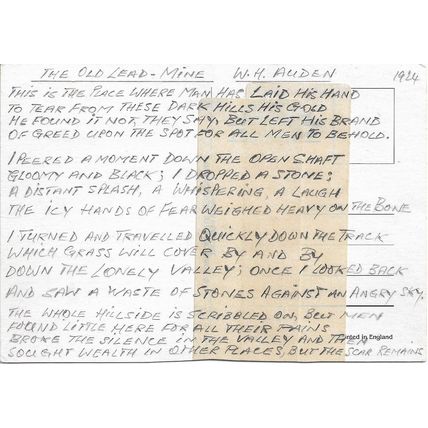 THE OLD LEAD-MINE W.H. AUDEN 1924
THIS IS THE PLACE WHERE MAN HAS LAID HIS HAND
TO TEAR FROM THESE DARK HILLS HIS GOLD
HE FOUND IT NOT, THEY SAY, BUT LEFT HIS BRAND
OF GREED UPON THE SPOT FOR ALL MEN TO BEHOLD.
I PEERED A MOMENT DOWN THE OPEN SHAFT
GLOOMY AND BLACK; I DROPPED A STONE;
A DISTANT SPLASH, A WHISPERING, A LAUGH
THE ICY HANDS OF FEAR WEIGHED HEAVY ON THE BONE
I TURNED AND TRAVELLED QUICKLY DOWN THE TRACK
WHICH GRASS WILL COVER BY AND BY
DOWN THE LONELY VALLEY; ONCE I LOOKED BACK
AND SAW A WASTE OF STONES AGAINST AN ANGRY SKY.
THE WHOLE HILLSIDE IS SCRIBBLED ON, BUT MEN
FOUND LITTLE HERE FOR ALL THEIR PAINS
Printed in England
BROKE THE SILENCE IN THE VALLEY AND THEN
SOUGHT WEALTH IN OTHER PLACES, BUT THE SCAR REMAINS